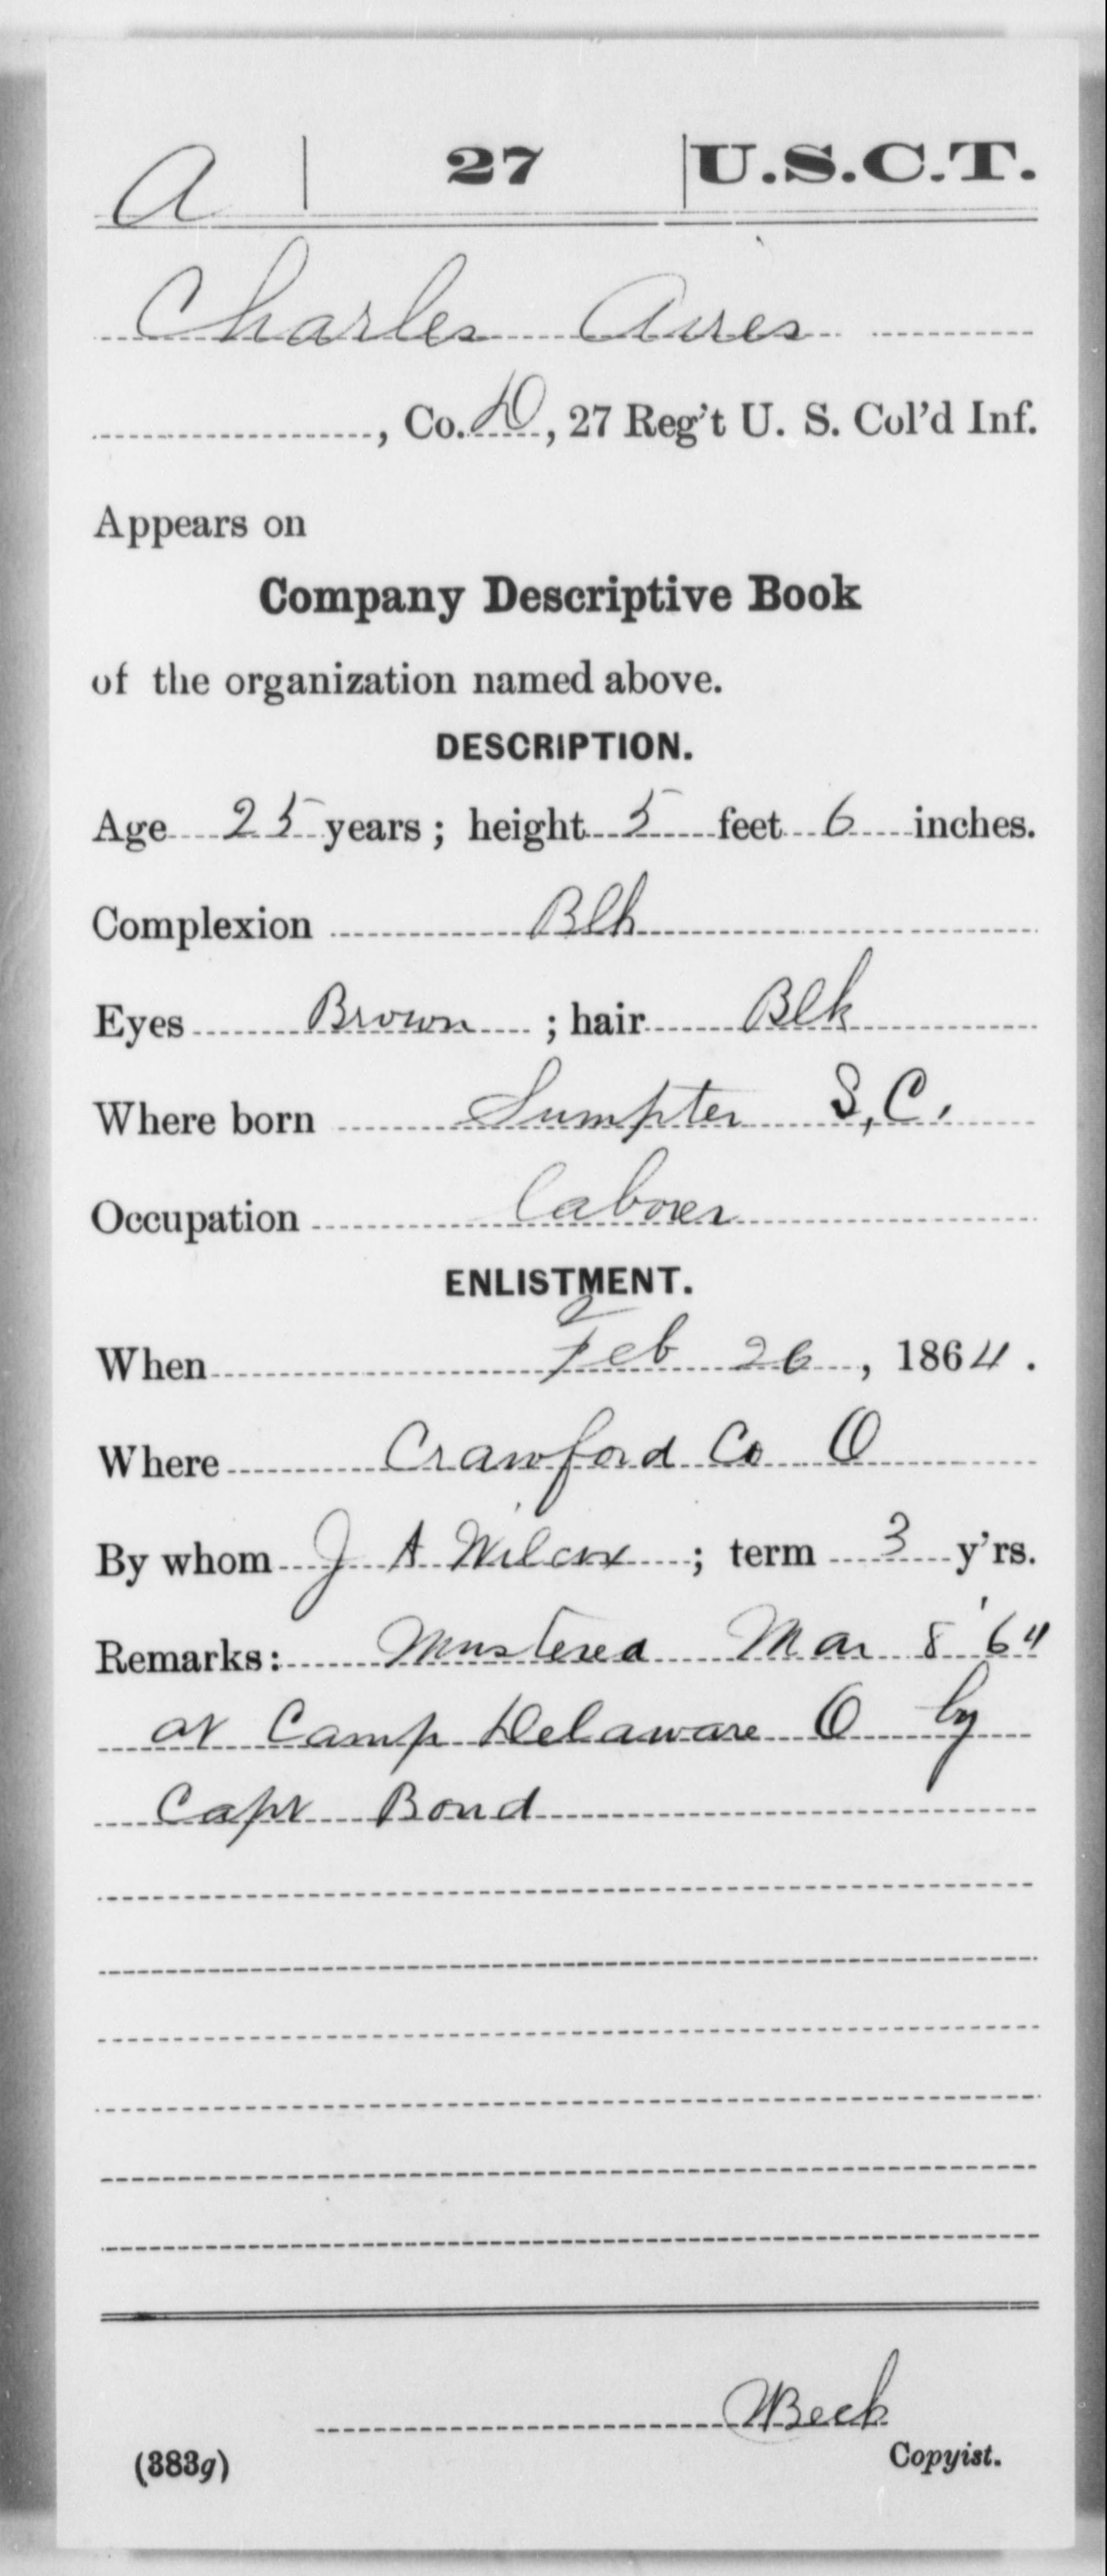 A | 27 | U.S.C.T.
Charles Aires
, Co. D, 27 Reg't U. S. Col'd Inf.
Appears on
Company Descriptive Book
of the organization named above.
DESCRIPTION.
Age 25 years; height 5 feet 6 inches.
Complexion Blk
Eyes Brown ; hair Blk
Where born Sumpter S,C.
Occupation Laborer
ENLISTMENT.
When Feb 26, 1864.
Where Crawford Co O
By whom J A Wilcox ; term 3 y'rs.
Remarks: Mustered Mar 8 '64
at Camp Delaware O by
Capt Bond
Beck
(383g) Copyist.